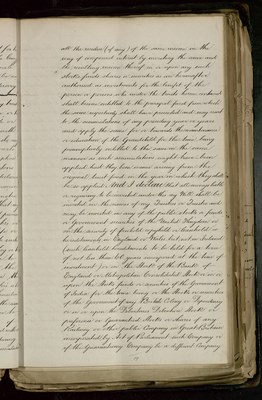 all the residue (if any) of the same income in the
way of compound interest by investing the same and
the resulting income thereof in or upon any such
stocks funds shares or securities as are hereinafter
authorized as investments for the benefit of the
person or persons who under the trusts herein contained
shall become entitled to the principal fund from which
the same respectively shall have proceeded and may resort
to the accumulations of any preceding year or years
and apply the same for or towards the maintenance
or education of the for the time being
presumptively entitled to the same in the same
manner as such accumulations might have been
applied had they been income arising from the
original trust fund in the year in which they shall
be so applied And I declare that all moneys liable
to be invested under this my Will shall be
invested in the names of my Trustees or Trustee and
may be invested in any of the public stocks or funds
or Government securities of the United Kingdom or
on the security of freehold copyhold or leasehold
hereditaments in England or Wales but not in Ireland
(such leasehold hereditaments to be held for a term
of not less than 60 years unexpired at the time of
investment for or in the Stock of the Bank of
England or Metropolitan Consolidated Stock or in or
upon the Stocks funds or securities of the Government
of India for the time being or the Stocks or securities
of the Government of any British Colony or Dependency
or in or upon the Debentures Debenture Stock or
preference or Guaranteed Stocks or shares of any
Railway or other public Company in Great Britain
incorporated by Act of Parliament such Company or
of the Guaranteeing Company be a different Company